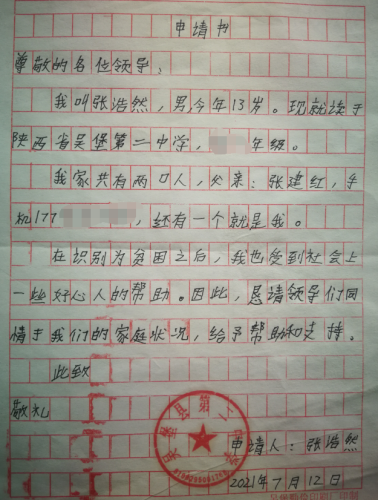 申请书
尊敬的各位领导:
我叫张浩然,男,今年13岁。现就读于
陕西省吴堡第二中学, 年级。
我家共有两口人,父亲:张建红,手
机177 ,还有一个就是我。
在识别为贫困之后,我也受到社会上
一些好心人的帮助。因此,恳请领导们同
情于我们的家庭状况,给予帮助和支持。
此致
敬礼
吴堡县第二中学
申请人:张浩然
2021年7月12日